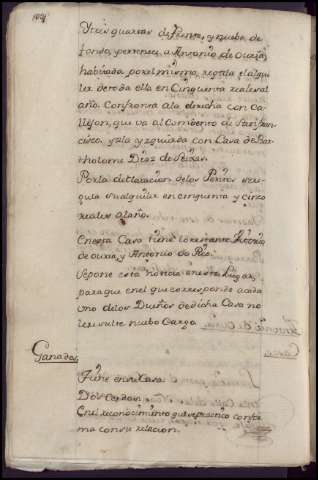 Y tres quartas de frente, y nuebe de
fondo, perteneze a Antonio de ouxia,
habitada por el mismo, regula el alqui
ler de toda ella en Cinquenta reales al
año. Confronta ala derecha con Ca
llejon, que va al Combento de San Fran
cisco, y ala yzquierda con Casa de Bar
tholome Diaz de Seixas.
Por la declaracion de los Peritos se re
gula su alquiler en cinquenta y cinco
reales al año.
En esta Casa tiene lo restante
de ouxia, y Antonio do Pico.
Se pone esta noticia en este Lugar,
para que en el que corresponde a cada
uno de los Dueños de dicha Casa no
le resulte nuebo Cargo.
Ganados
Tiene en su Casa.
Dos Cerdos.
En el reconocimiento que se practico confor
ma con su relacion.